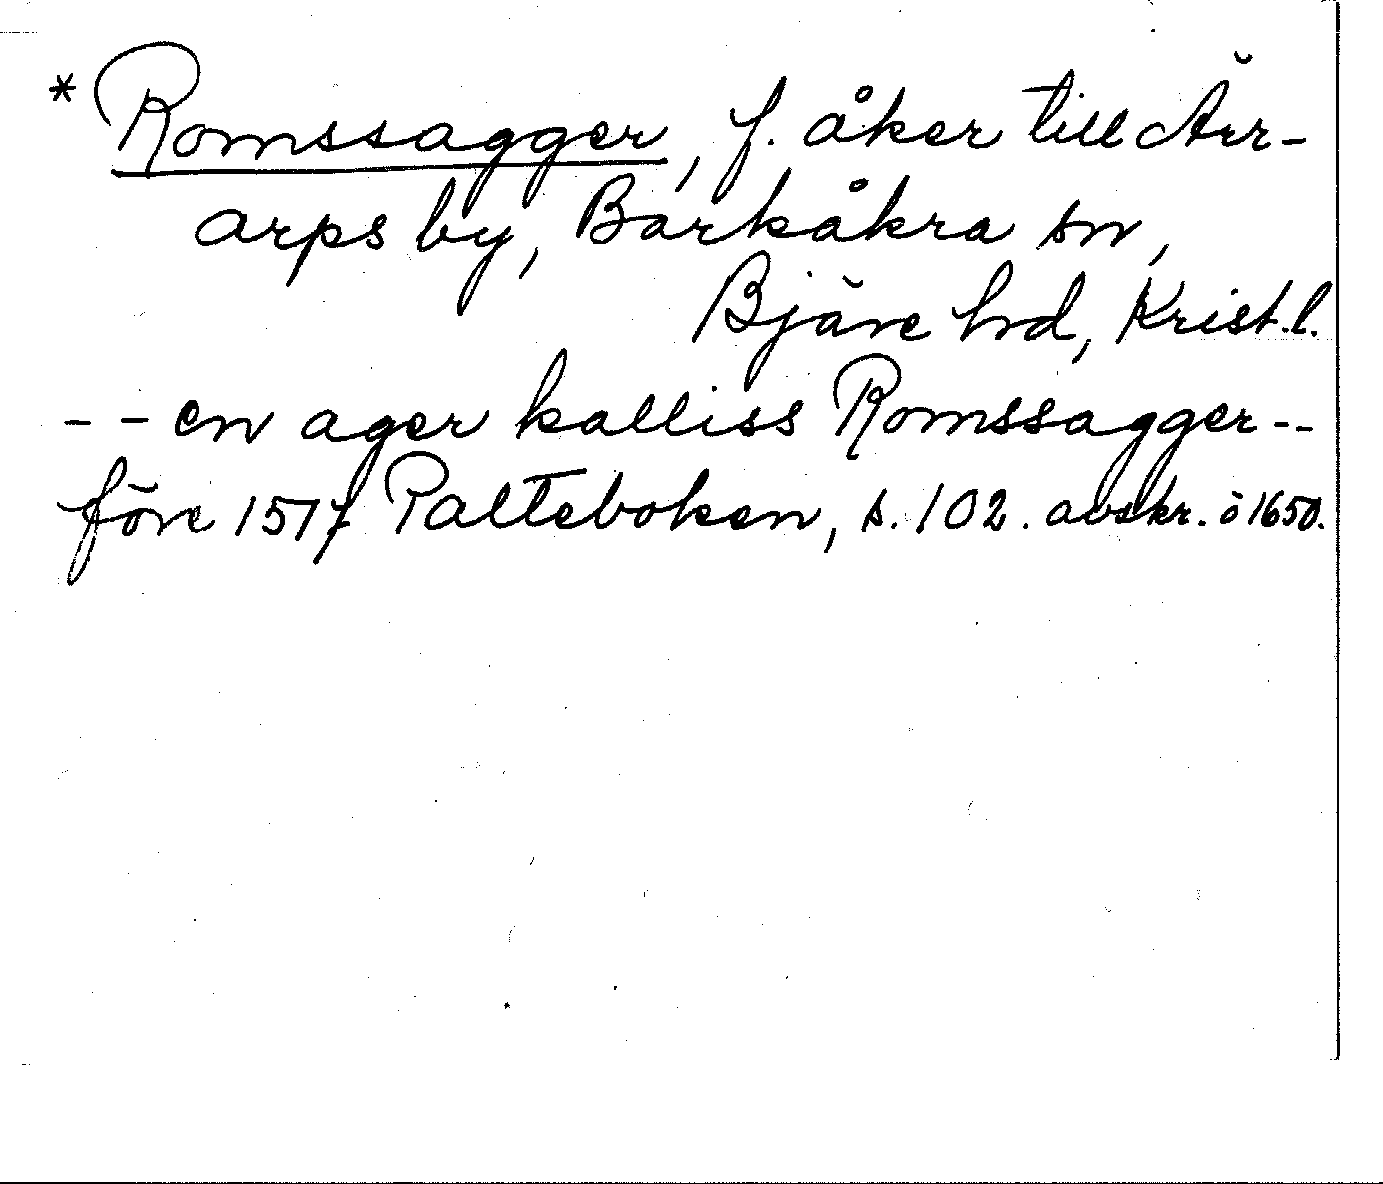 * Romssagger, f. åker till Ärr-
arps by, Barkåkra sn,
Bjäre hrd, Krist.l.
-- en ager kalliss Romssagger --
före 1517 Palteboken, s. 102. avskr. ö 1650.